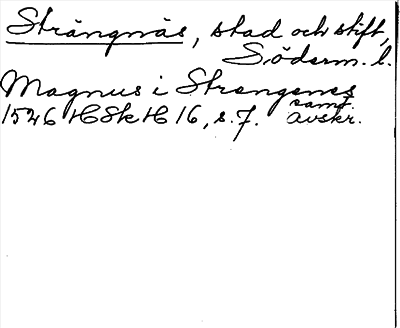 Strängnäs, stad och stift,
Söderm. l.
Magnus i Strengenes
1546 HSkH 16, s. 7. samt.
avskr.